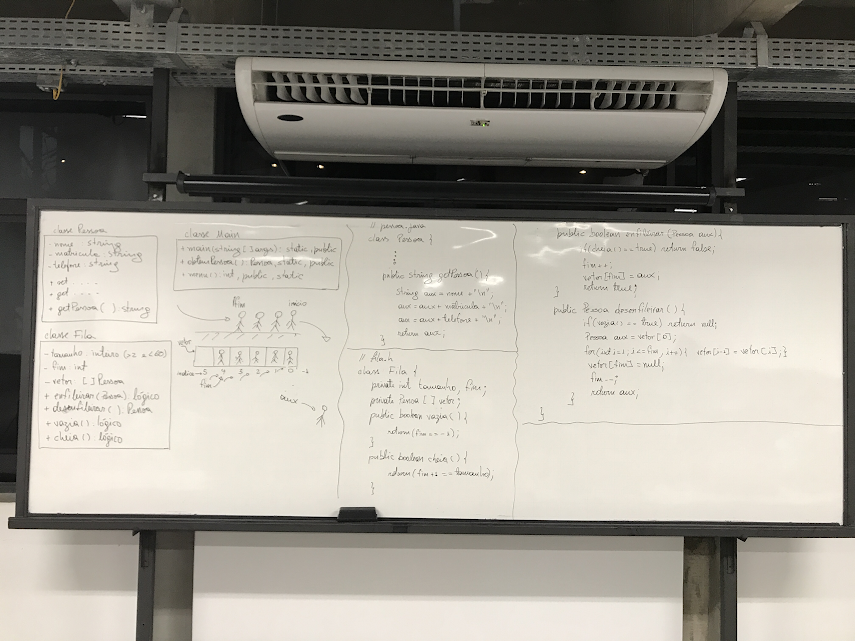 classe Pessoa
- nome string
- matricula: string
- telefone: string
+ set - - - -
+ get - - - -
+ getPessoa ( ) string
classe Fila
- tamanho, inteiro
- fim int
- vetor [ ] Pessoa
+ enfileirar (Pessoa) lógico
+ desenfileirar ( ): Pessoa
+ vazia ( ) : lógico
+ cheia ( ) : lógico
classe Main
+ main (string [ ] args) : static, public
+ obtemPessoa ( ) : Pessoa, static, public
+ menu ( ) : int, public, static
fim
início
vetor
indice → 5 4 3 2 1 0 -1
fim
aux
// pessoa.java
class Pessoa {
public string getPessoa ( ) {
string aux = nome + "\n",
aux = aux + matricula + "\n",
aux = aux + telefone + "\n",
return aux;
}
//
class Fila {
private int tamanho, fim;
private Pessoa [ ] vetor;
public boolean vazia ( ) {
return (fim == -1);
}
public boolean cheia ( ) {
return (fim+1 == tamanho);
}
public boolean enfileirar (Pessoa aux) {
if (cheia ( ) == true) return false;
fim++;
vetor [fim] = aux;
return true;
}
public Pessoa desenfileirar ( ) {
if (vazia ( ) == true) return null;
Pessoa aux = vetor [0];
for (int i=1, i<=fim, i++) { vetor [i-1] = vetor [i]; }
vetor [fim] = null;
fim--;
return aux;
}
}